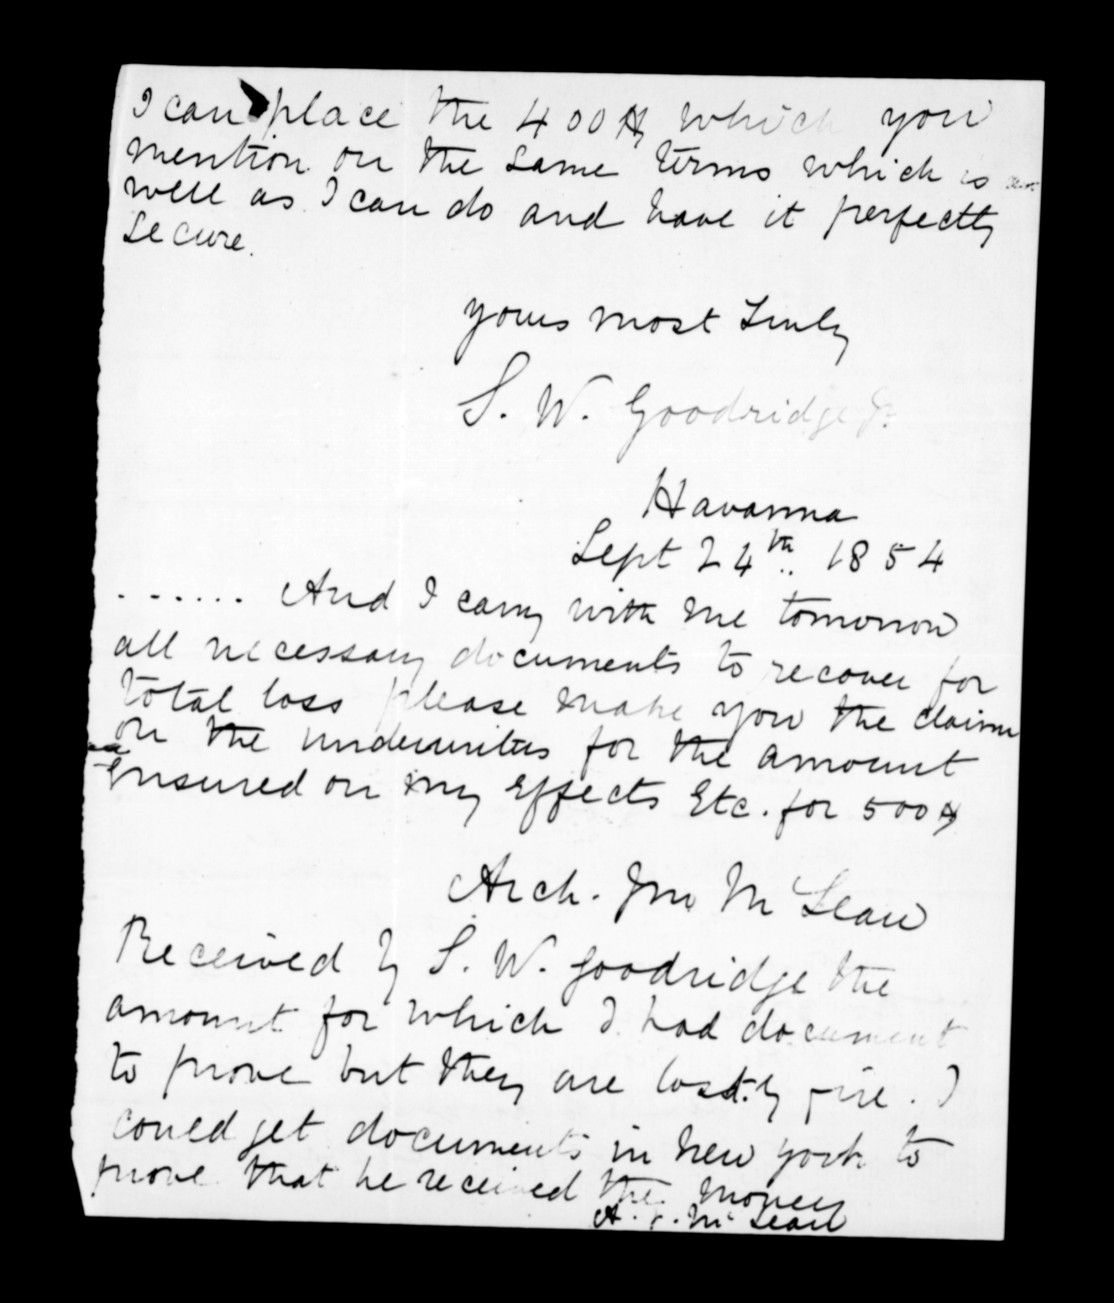 I can place the 400$ which you
mention on the same terms which is as
well as I can do and have it perfectly
Secure.
yours most Truly
S. W. Goodridge Jr.
Havanna
Sept 24th. 1854
...... And I carry with me tomorrow
all necessary documents to recover for
total loss please make you the claim
on the underwriters for the amount
Ensured on my Effects Etc. for 500$
Arch. Jno McLean
Received by S. W. Goodridge the
amount for which I had document
to prove but they are lost by fire. I
could get documents in New York to
prove that he received the money
A. J. McLean